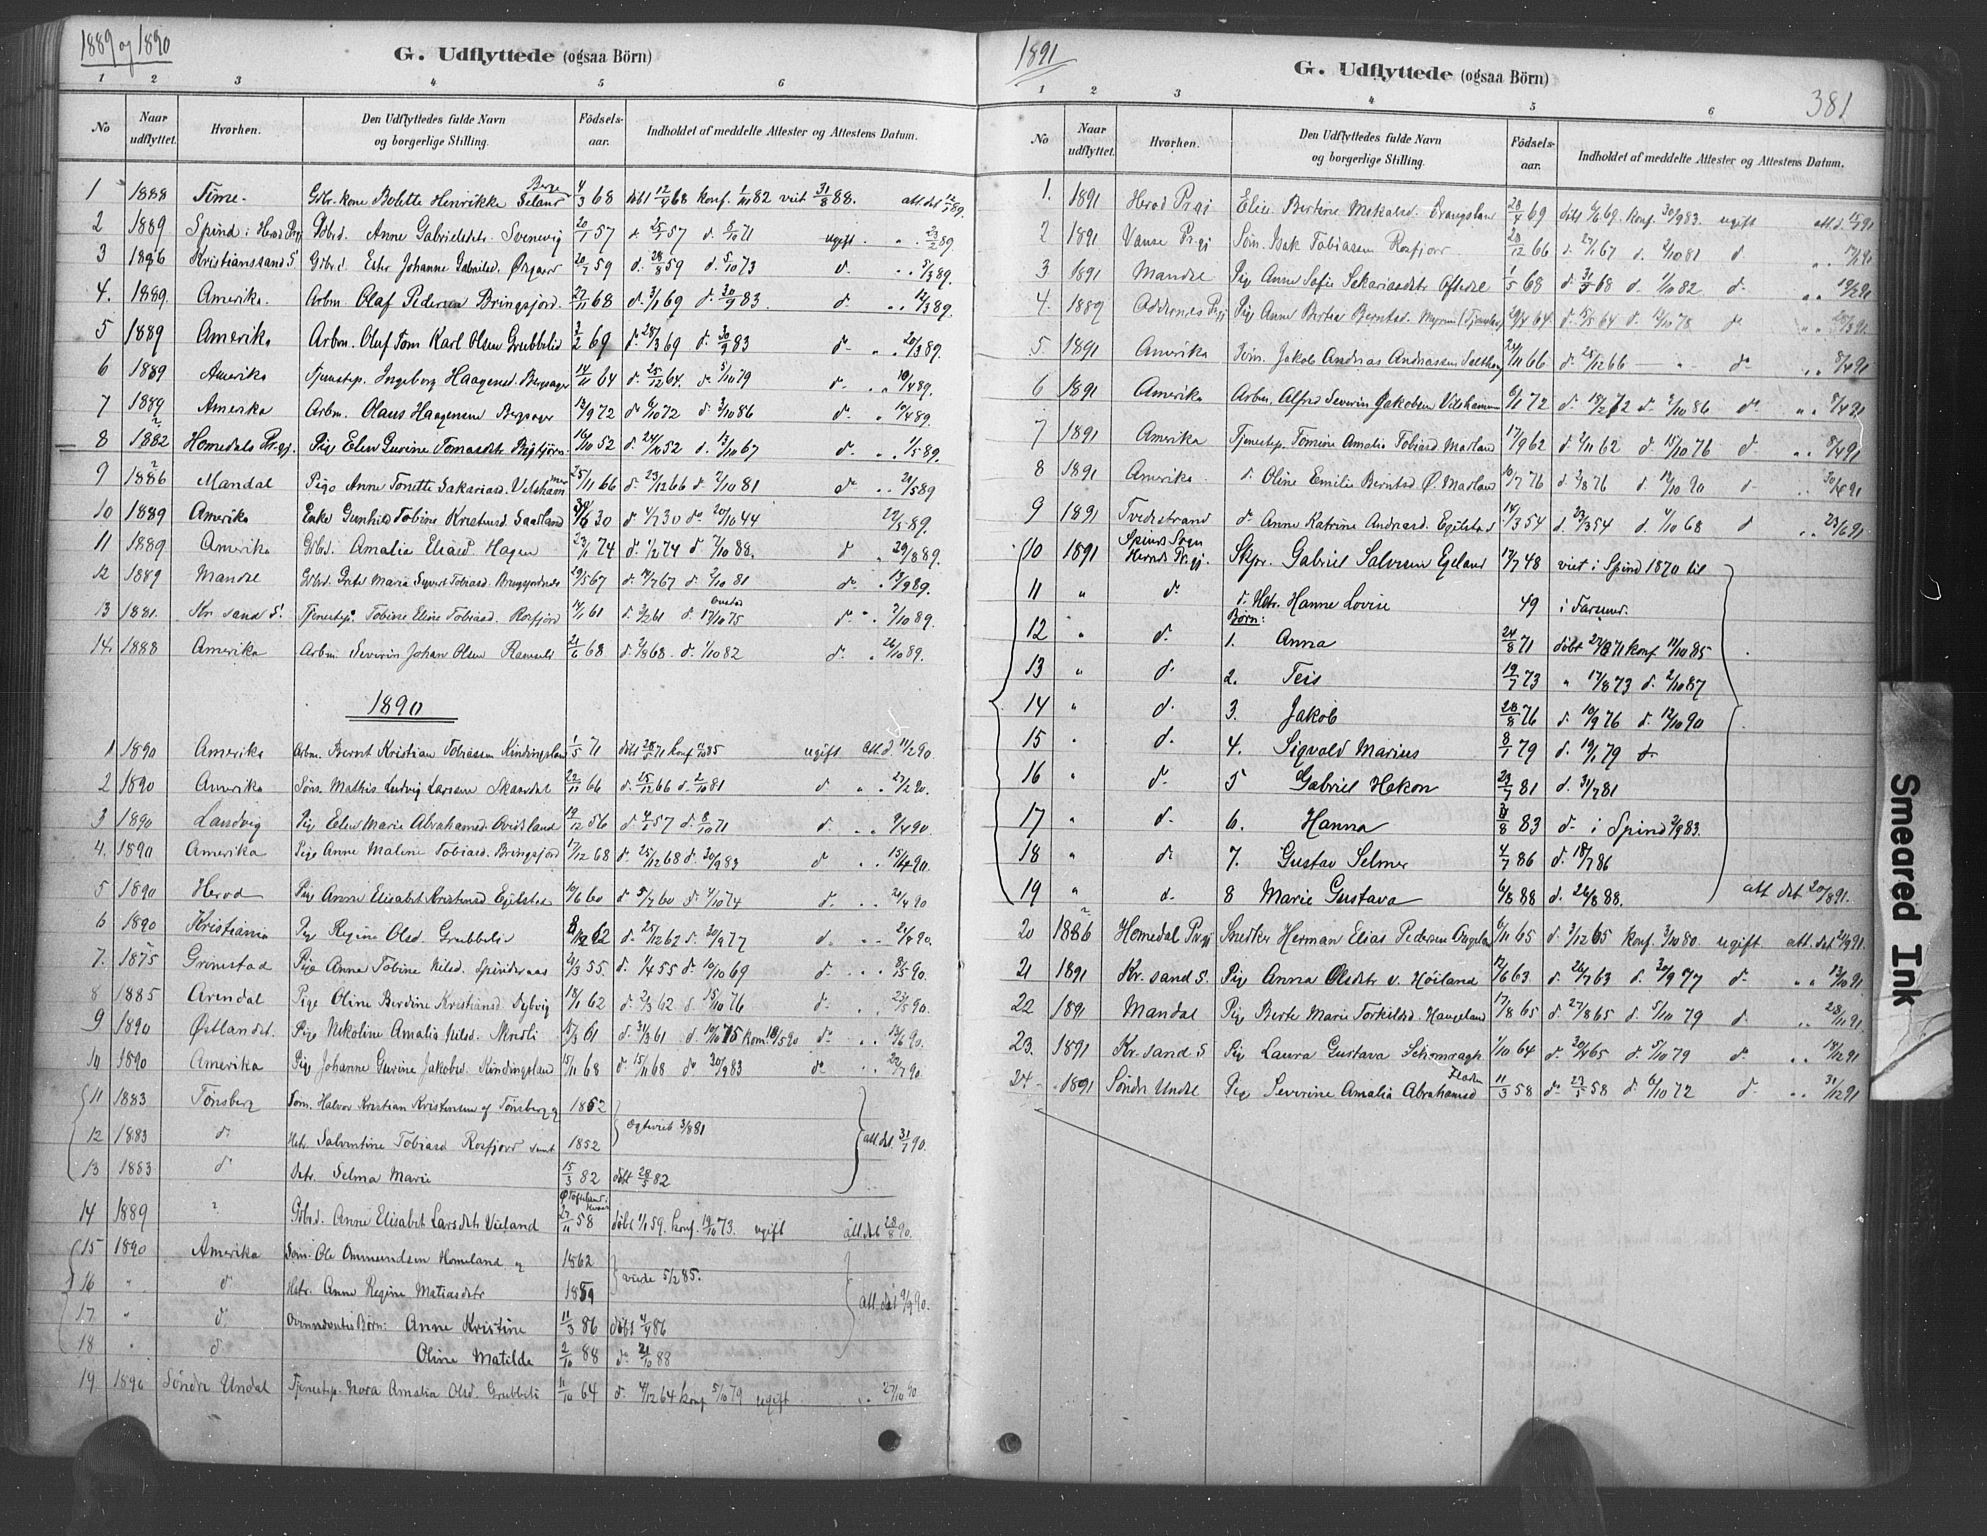 1889 og 1890
G. Udflyttede (ogsaa Börn)
1 2 3 4 5 6
No Naar udflyttet. Hvorhen. Den Udflyttedes fulde Navn og borgerlige Stilling. Födsels-aar. Indholdet af meddelte Attester og Attestens Datum.
1 1888 Time. Gbr. kone Bolette Henrikke Berge Seland 4/3 68 döbt 12/4 68 konf. 82 viet 31/8 88. att. dat 89.
2 1889 Spind i Herod Prgj Gbrd. Anne Gabrielsdtr. Svenevig 20/1 57 d. 25/1 57 d. 8/10 71 ugift. 23/2 89
3 1886 Kristianssand S. Gbrd Ester Johanne Gabrielsd. 20/7 59 d. 28/8 59 d. 5/10 73 d. 8/3 89.
4. 1889. Amerika. Arbm. Olaf Pedersen Bringsjord 22/11 68 d. 3/1 69 d. 30/9 83 d. 12/3 89.
5 1889 Amerika Arbm. Oluf Tom Karl Olsen Grubbelid 3/2 69 d. 28/3 69 d. 30/9 83 d. 20/3 89.
6 1889 Amerika Tjenestep. Ingeborg Haagensd. Bergsager 14/11 64 d. 25/12 64. d. 5/10 79 d. 10/4 89.
7 1889 Amerika Arbm. Olaus Haagensen Bergsager 12/9 72 d. 6/10 72 d. 3/10 86 d. 10/4 89.
8 1882 Homedals Prgj. Pige Elen Gurine Tomasdtr 16/10 52 d. 24/10 52 d. 13/10 67 d. 1/5 89.
9 1886 Mandal Pige Anne Tonette Sakariasd. Vilshammer 25/11 66 d. 23/12 66 d. 2/10 81 d. 21/5 89
10 1889 Amerika Enke Gunhild Tobine Knutsd. Saasland 30/6 30 d. 4/7 30 d. 20/10 44 22/5 89.
11 1889. Amerika Gbrd. Amalie Eliasd Hagen 23/1 74 d. 1/2 74 d. 7/10 88. d. 29/8 89.
12 1889 Mandal Gbrd. Grete Marie Syvert Tobiasd. 29/5 67 d. 14/7 67 d. 2/10 81 d. 13/9 89.
13 1881. Kr. sand S. Tjenestep. Tobine Eline Tobiasd. Rosfjord 14/1 61 d. 3/2 61 d. 17/10 75 d. 2/10 89.
14. 1888 Amerika Arbm. Severin Johan Olsen 21/6 68 d. 2/8 68. d. 1/10 82 d. 26/10 89.
1890
1 1890 Amerika Arbm. Bernt Kristian Tobiassen Kindingsland 1/5 71 döbt 28/5 71 konf. 85 ugift att. d. 11/2 90
2 1890 Amerika Söm. Mathis Ludvig Larsen Skaardal 22/11 66 d. 25/12 66 d. 2/10 81 d. 27/2 90.
3 1890 Landvig Pige Elen Marie Abrahamsd. Östland 19/12 56 d. 57 d. 8/10 71 d. 9/4 90.
4. 1890 Amerika Pige Anne Malene Tobiasd. Bringsjord 17/12 68 d. 25/12 68 d. 30/9 83 d. 15/4 90.
5 1890 Herod Pige Anne Elisabet Kristensd Egilstad 10/6 60 d. 5/7 60 d. 4/10 74 d. 21/4 90
6 1890 Kristiania Pige Regine Olsd. Grubbeli 8/12 62 d. 25/12 62 d. 30/9 77 d. 21/4 90.
7. 1875 Grimstad Pige Anna Tobine Nilsd. Spindernaas 21/3 55. d. 1/4 55 d. 10/10 69 d. 8/5 90.
8 1885 Arendal Pige Oline Berdine Kristiansd. Dybvig 18/1 62 d. 2/3 62 d. 15/10 76 d. 23/5 90.
9 1890 Östlandet. Pige Nikoline Amalia Nilsd. 15/3 61 d. 31/3 61 d. 10/10 75 kom. 18/5 90 d. 13/6 90.
10 1890 Amerika Pige Johanne Gurine Jakobsd. Kindingsland 15/11 68 d. 15/11 68 d. 30/9 83 d. 22/7 90.
11 1883 Tönsberg Söm. Halvor Kristian Kristensen af Tönsberg og 1852
12 1883 d. Hstr. Salventine Tobiasd Rosfjord samt 1852 Egteviet 3/8 81 att. dat. 31/7 90.
13 1883 d. Dtr. Selma Marie 15/3 82 döbt 28/5 82
14 1889 ? Gbrd. Anne Elisabet Larsdtr. Vieland 27/11 58 döbt 1/1 59. konf. 19/10 73. ugift att. dat 28/8 90.
15 1890 Amerika Söm. Ole Ommundsen Homeland og 1862
16 " d. Hstr. Anne Regine Matiasdtr 1859 viede 5/2 85.
17 " d. Ovennævntes Börn: Anne Kristine 11/3 86 döbt 4/4 86 att. dat 9/9 90.
18 " d. Oline Matilde 2/10 88 d. 21/10 88
19 1890 Söndre Undal Tjenestep. Nora Amalia Olsd. Grubbeli 11/10 64 d. 4/12 64 konf 5/10 79 ugift 27/10 90.
1891
381
G. Udflyttede (ogsaa Börn)
1 2 3 4 5 6
No Naar udflyttet. Hvorhen. Den Udflyttedes fulde Navn og borgerlige Stilling. Födsels-aar. Indholdet af meddelte Attester og Attestens Datum.
1. 1891 Herod Prgj Elise Bertine Mikalsd. Brangsland 28/4 69 döbt 6/6 69. konf. 30/9 83. ugift att. d. 15/1 91
2 1891 Vanse Prgj Söm. Isak Tobiassen Rosfjord 28/12 66 d. 27/1 67 d. 2/10 81 d. 91
3 1891 Mandal Pige Anne Sofie Sakariasdtr Oftedal 1/5 68 d. 31/5 68 d. 1/10 82 d. 19/2 91
4. 1889 Oddernes Prgj Pige Anne Bertine Berntsd. 29/4 64 d. 5/5 64 d. 12/10 78 d. 28/3 91
5 1891 Amerika Söm. Jakob Andreas Andreassen 24/11 66 d. 25/12 66 d. 8/4 91
6 1891 Amerika Arbm. Alfred Severin Jakobsen Vilshammer 6/11 72 d. 18/2 72 d. 2/10 86 d. 8/4 91
7 1891 Amerika Tjenestep. Tomine Amalia Tobiasd Marland 17/9 62 d. 2/11 62 d. 15/10 76 d. 8/4 91
8 1891 Amerika. d. Oline Emilie Berntsd. Ö. Marland 16/7 76 d. 2/8 76 d. 12/10 90 d. 30/4 91
9 1891 Tvedestrand d. Anne Katrine Andreasd. Egilstad 14/3 54 d. 23/3 54 d. 4/10 68 d. 23/6 91
10 1891 Spinds Sogn Herods Prgj. Skpr. Gabriel Salvesen Egeland 17/7 48 viet i Spind 1870 til
11 " d. d. Hstr. Hanne Lovise 49 i Farsund.
Börn:
12 " d. 1. Anna 24/8 71 döbt 27/8 71 konf. 11/10 85
13 " d. 2. Teis 19/7 73 " 17/8 73 d. 2/10 87
14 " d. 3. Jakob 28/8 76 d. 10/9 76 d. 12/10 90
15 " d. 4. Sigvald Marius 8/1 79 d. 19/1 79 d.
16 " d. 5 Gabriel Hekon 23/7 81 d. 31/7 81
17 " d. 6. Hanna 8/8 83 d. i Spind 2/9 83.
18 " d. 7. Gustav Selmer 4/7 86 d. 18/7 86
19 " d. 8 Marie Gustava 6/8 88 d. 26/8 88. att. dat 20/8 91.
20 1886 Homedal Prgj Snedker Herman Elias Pedersen 6/11 65 d. 3/12 65 konf. 3/10 80. ugift att. dat 21/9 91.
21 1891 Kr. sand S. Pige Anna Olsdtr v. Höiland 12/6 63 d. 26/7 63 d. 30/9 77 d. 13/10 91
22 1891 Mandal Pige Berte Marie Torkildsd. Haugeland 17/8 65 d. 27/8 65 d. 5/10 79 d. 28/11 91.
23. 1891 Kr. sand S Pige Laura Gustava Schomragh 1/10 64 d. 30/4 65 d. 5/10 79 d. 14/12 91
24 1891 Söndr Undal Pige Severine Amalia Abrahamsd 11/3 58 d. 27/5 58 d. 6/10 72 d. 31/12 91
Smeared Ink